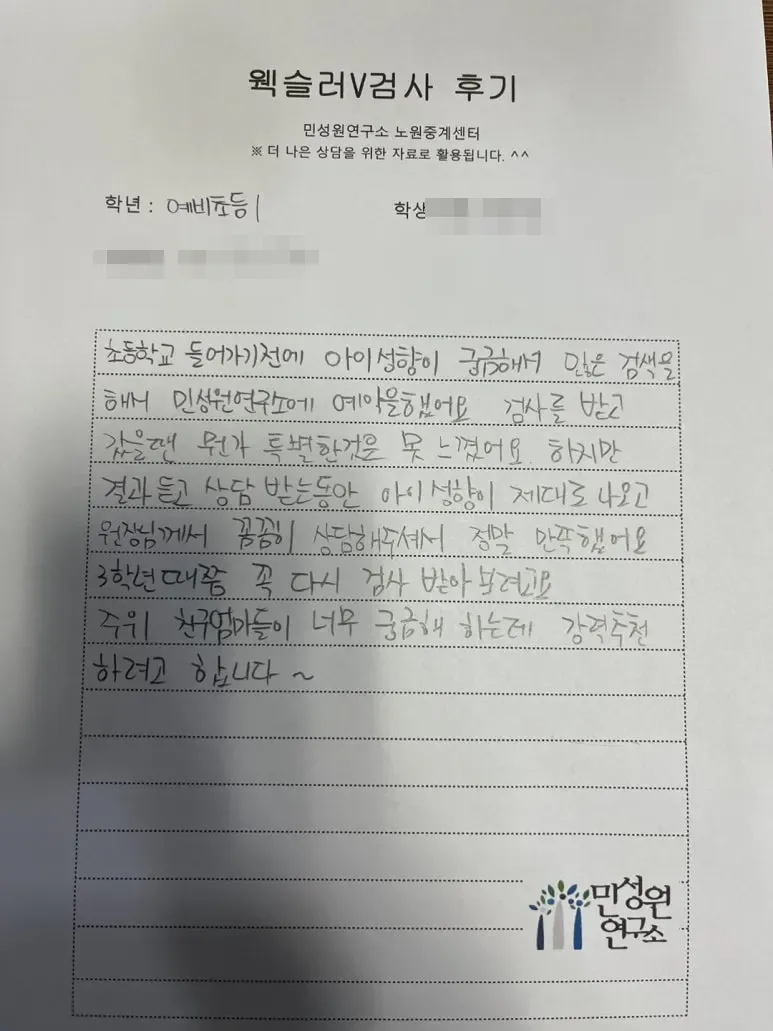 웩슬러V검사 후기
민성원연구소 노원중계센터
※ 더 나은 상담을 위한 자료로 활용됩니다. ^^
학년 : 예비초등1
학생
초등학교 들어가기전에 아이성향이 궁금해서 많은 검색을
해서 민성원연구소에 예약을했어요 검사를 받고
갔을땐 뭔가 특별한것은 못 느꼈어요. 하지만
결과 듣고 상담 받는동안 아이성향이 제대로 나오고
원장님께서 꼼꼼히 상담해주셔서 정말 만족했어요
3학년때쯤 꼭 다시 검사 받아보려고요
주위 친구엄마들이 너무 궁금해 하는데 강력추천
하려고 합니다 ~
민성원
연구소